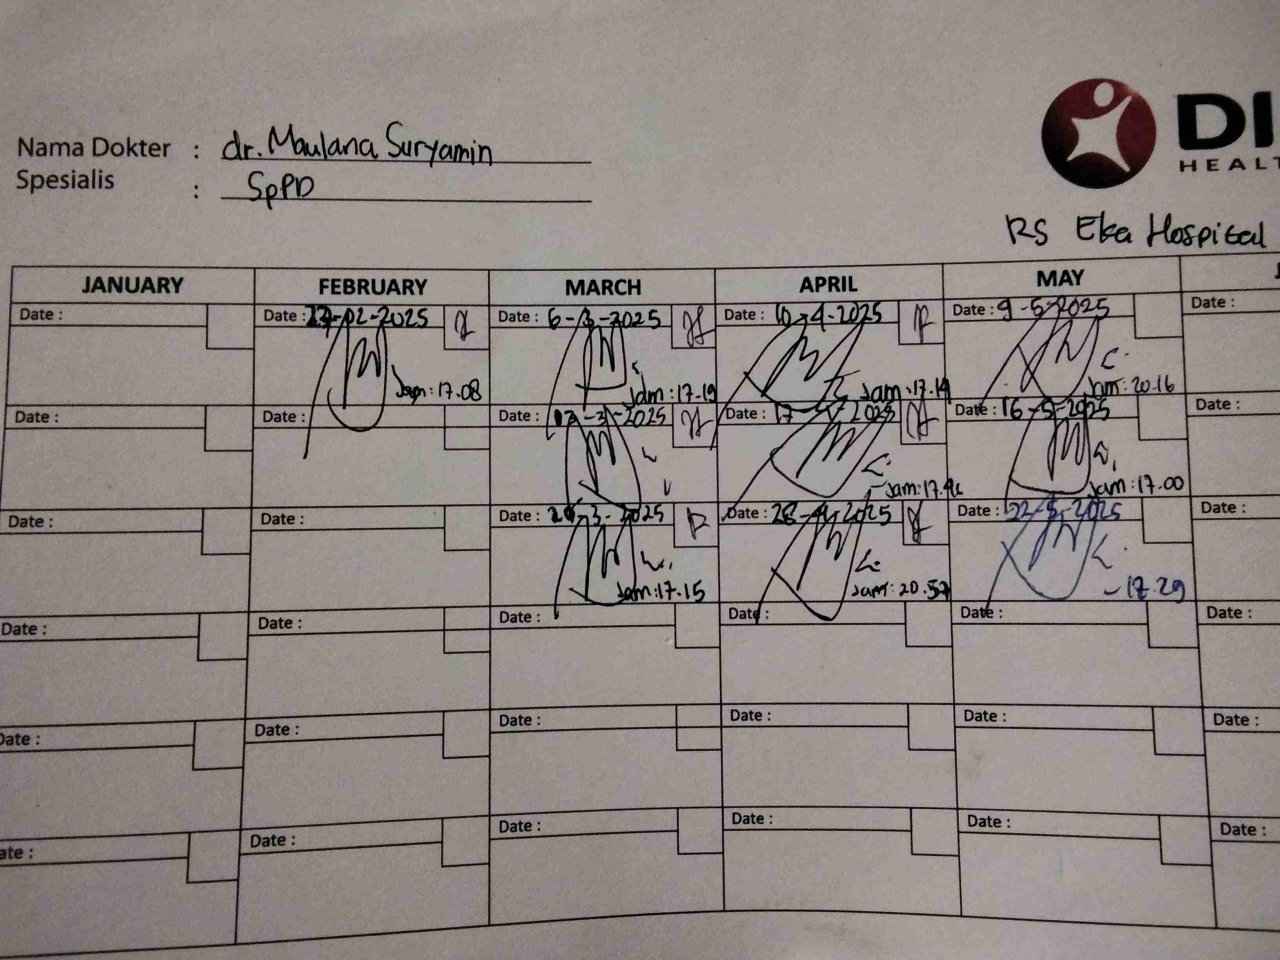 Nama Dokter : dr. Maulana Suryamin
Spesialis : SpPD
DI
HEALT
RS Eka Hospital
JANUARY FEBRUARY MARCH APRIL MAY J
Date : Date : -02-2025 Date : 6-3-2025 Date : 10-4-2025 Date : 9-5-2025 Date :
Jam: 17.08 Jam: 17.19 Jam: 17.19 Jam: 20.16
Date : Date : -3-2025 Date : 17-4-2025 Date : 16-5-2025 Date :
Jam: Jam: 17.00
Date : Date : Date : -3-2025 Date : 28-4-2025 Date : 22-5-2025 Date :
Jam: 17.15 Jam: 20.57 - 17.29
Date : Date : Date : Date : Date : Date :
Date : Date : Date : Date : Date : Date :
ate : Date : Date : Date : Date : Date :